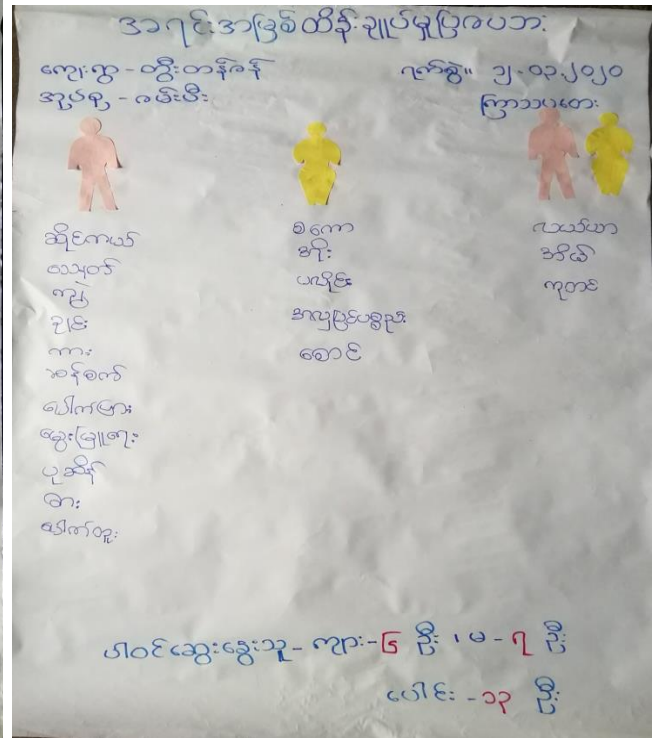 အရင်းအမြစ်ထိန်းချုပ်မှုပြဇယား
ကျေးရွာ - တွီးတန်ဇန်
ရက်စွဲ။ ၁၂.၀၃.၂၀၂၀
အုပ်စု - ဇမ်းမီး
ကြာသပတေး
ဆိုင်ကယ်
သေနတ်
ကျွဲ
ကား
ဆန်စက်
ပေါက်ပြား
မွေးမြူရေး
ပုဆိန်
ဓား
ပေါက်တူး
စကော
အိုး
ပလိုင်း
အလှပြင်ပစ္စည်း
စောင်
လယ်ယာ
အိမ်
ကုတင်
ပါဝင်ဆွေးနွေးသူ - ကျား - ၆ ဦး ၊ မ - ၇ ဦး
ပေါင်း - ၁၃ ဦး